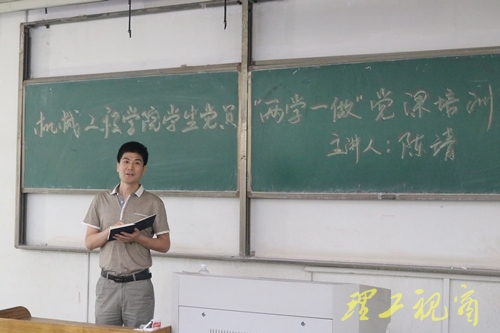 机械工程学院学生党员"两学一做"党课培训
主讲人：陈靖
理工视商